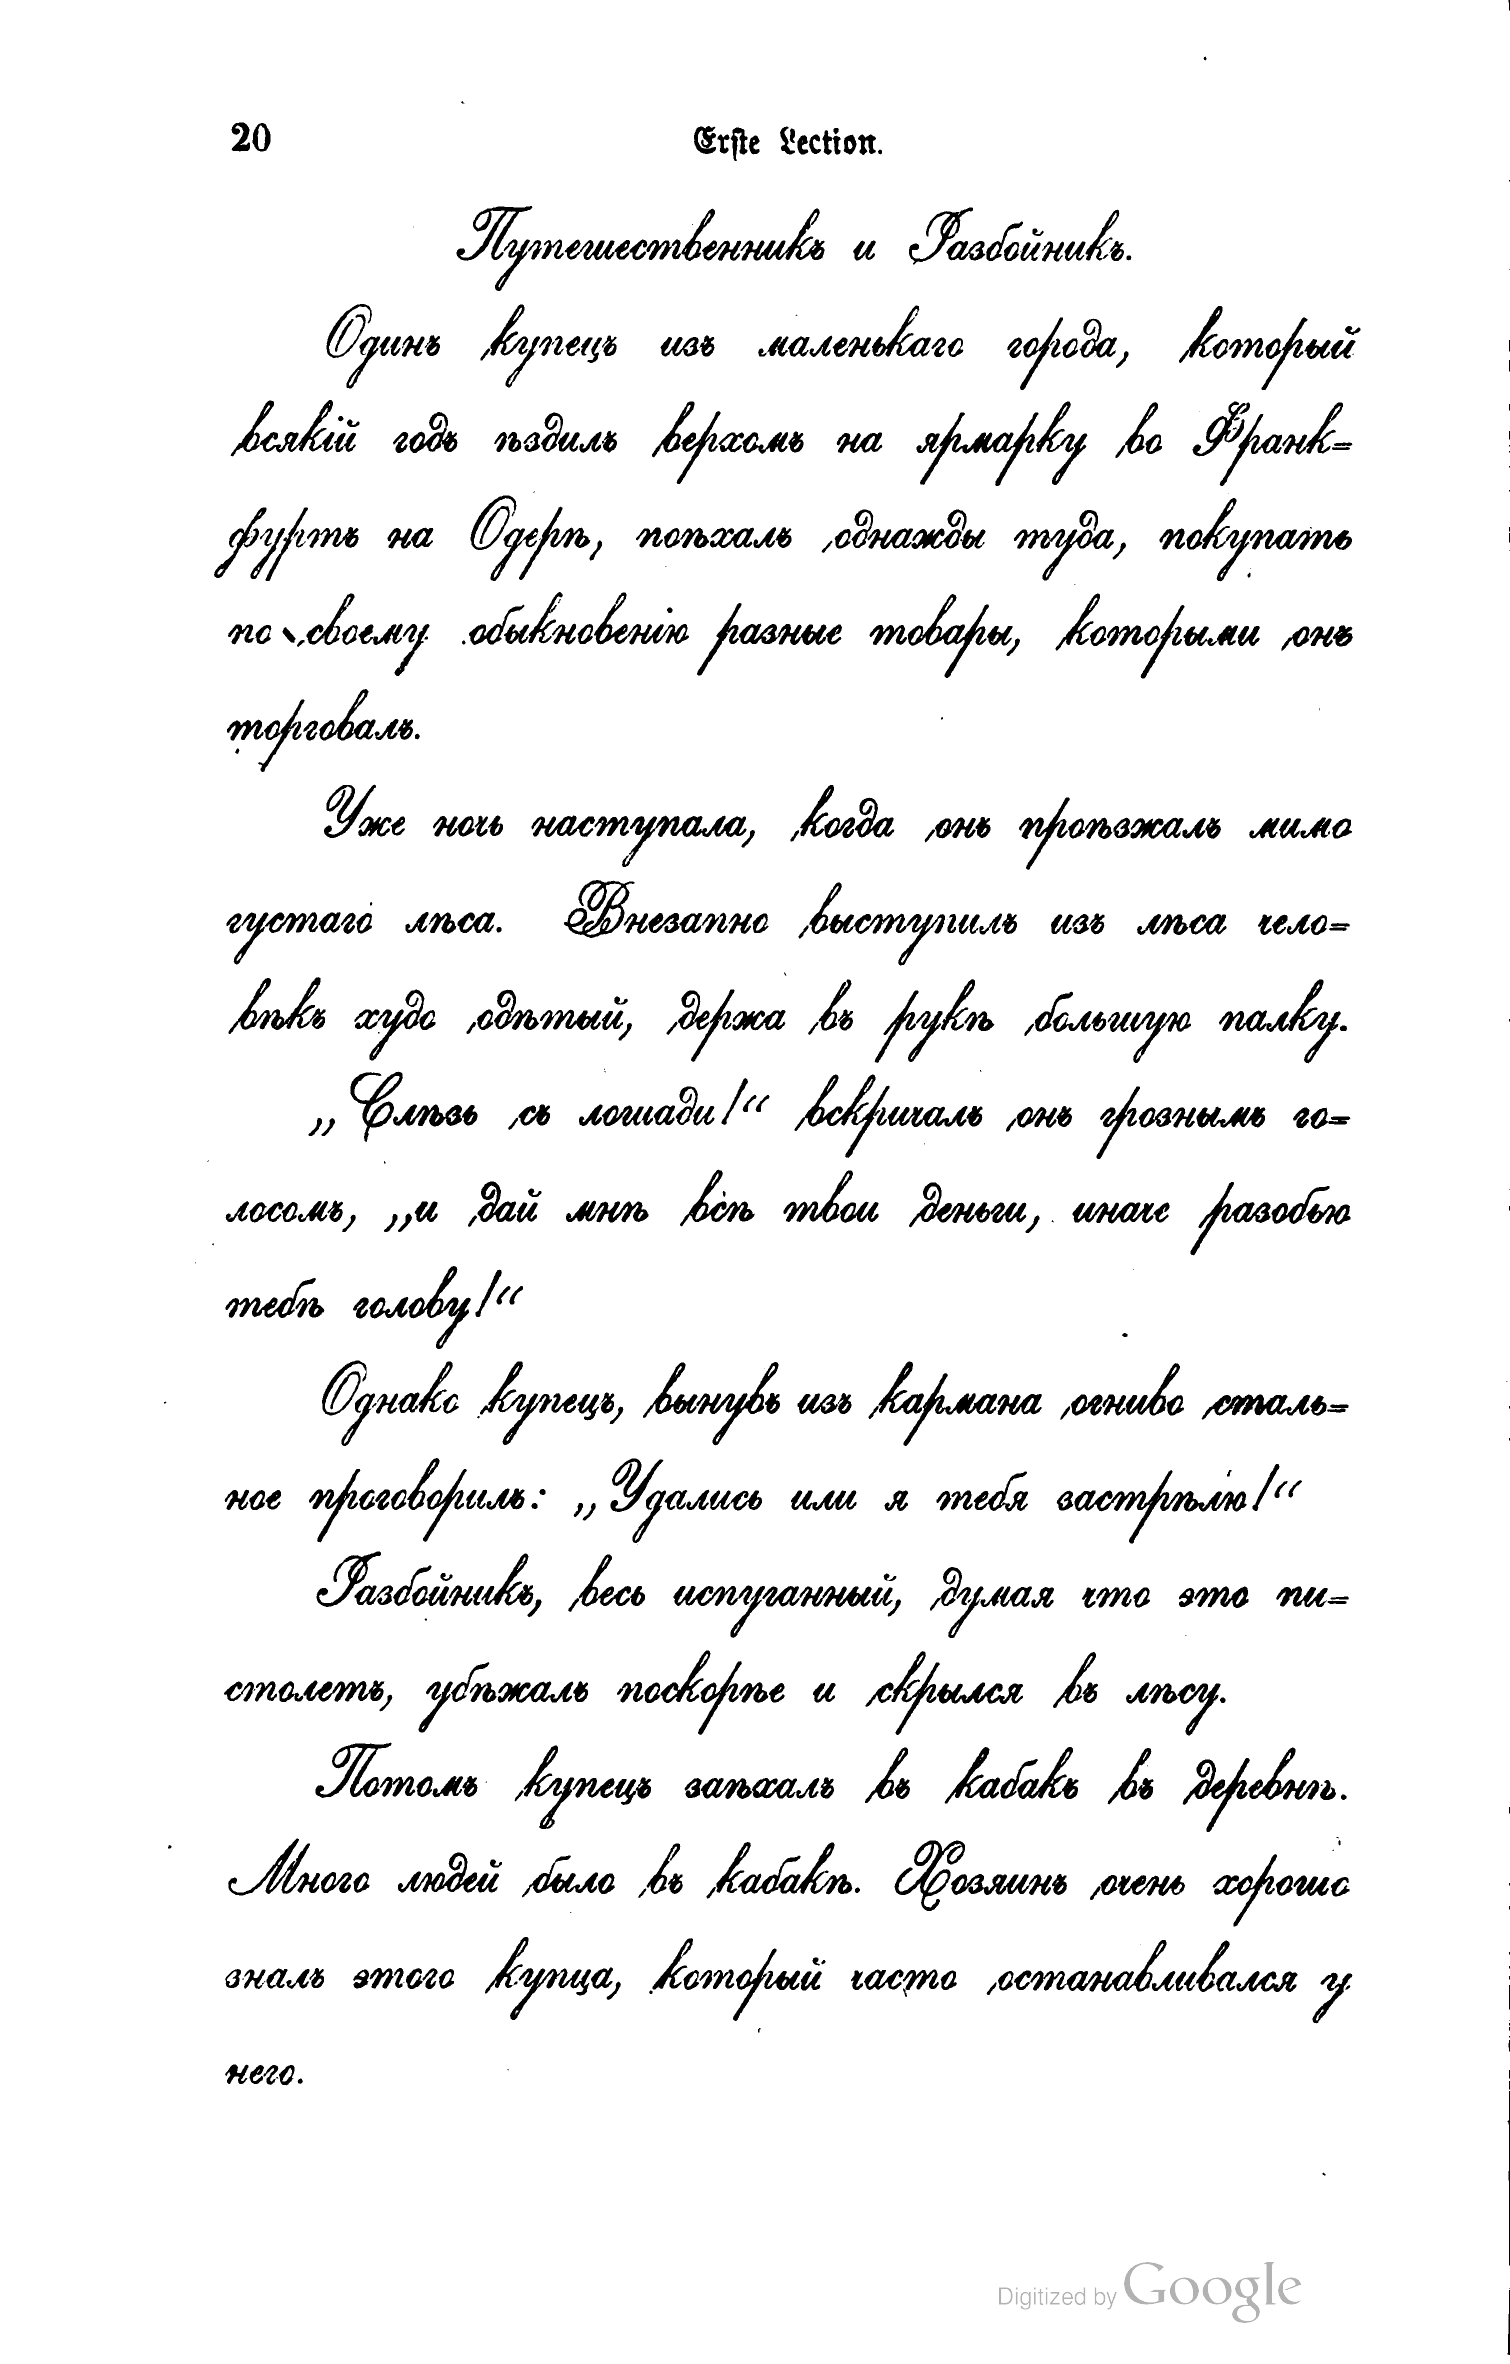 20 Erste Lection.
Путешественникъ и Разбойникъ.
Одинъ купецъ изъ маленькаго города, который
всякій годъ ѣздилъ верхомъ на ярмарку во Франк=
фуртъ на Одерѣ, поѣхалъ однажды туда, покупать
по своему обыкновенію разные товары, которыми онъ
торговалъ.
Уже ночь наступала, когда онъ проѣзжалъ мимо
густаго лѣса. Внезапно выступилъ изъ лѣса чело=
вѣкъ худо одѣтый, держа въ рукѣ большую палку.
„Слѣзь съ лошади!“ вскричалъ онъ грознымъ го=
лосомъ, „и дай мнѣ всѣ твои деньги, иначе разобью
тебѣ голову!“
Однако купецъ, вынувъ изъ кармана огниво сталь=
ное проговорилъ: „Удались или я тебя застрѣлю!“
Разбойникъ, весь испуганный, думая что это пи=
столетъ, убѣжалъ поскорѣе и скрылся въ лѣсу.
Потомъ купецъ заѣхалъ въ кабакъ въ деревнѣ.
Много людей было въ кабакѣ. Хозяинъ очень хорошо
зналъ этого купца, который часто останавливался у
него.
Digitized by Google